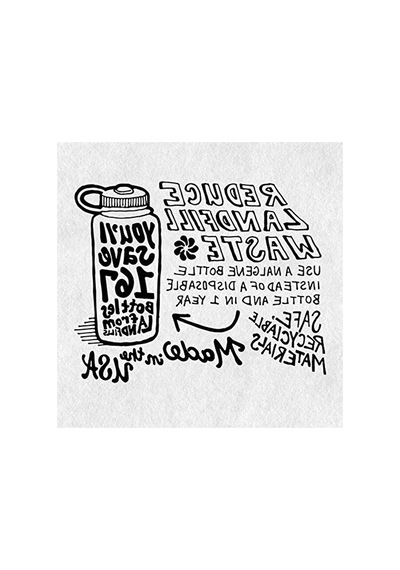 REDUCE
LANDFILL
WASTE
USE A NALGENE BOTTLE
INSTEAD OF A DISPOSABLE
BOTTLE AND IN 1 YEAR
you'll
save
167
Bottles
from
LANDFILLS
SAFE,
RECYCLABLE
MATERIALS
Made in the
USA